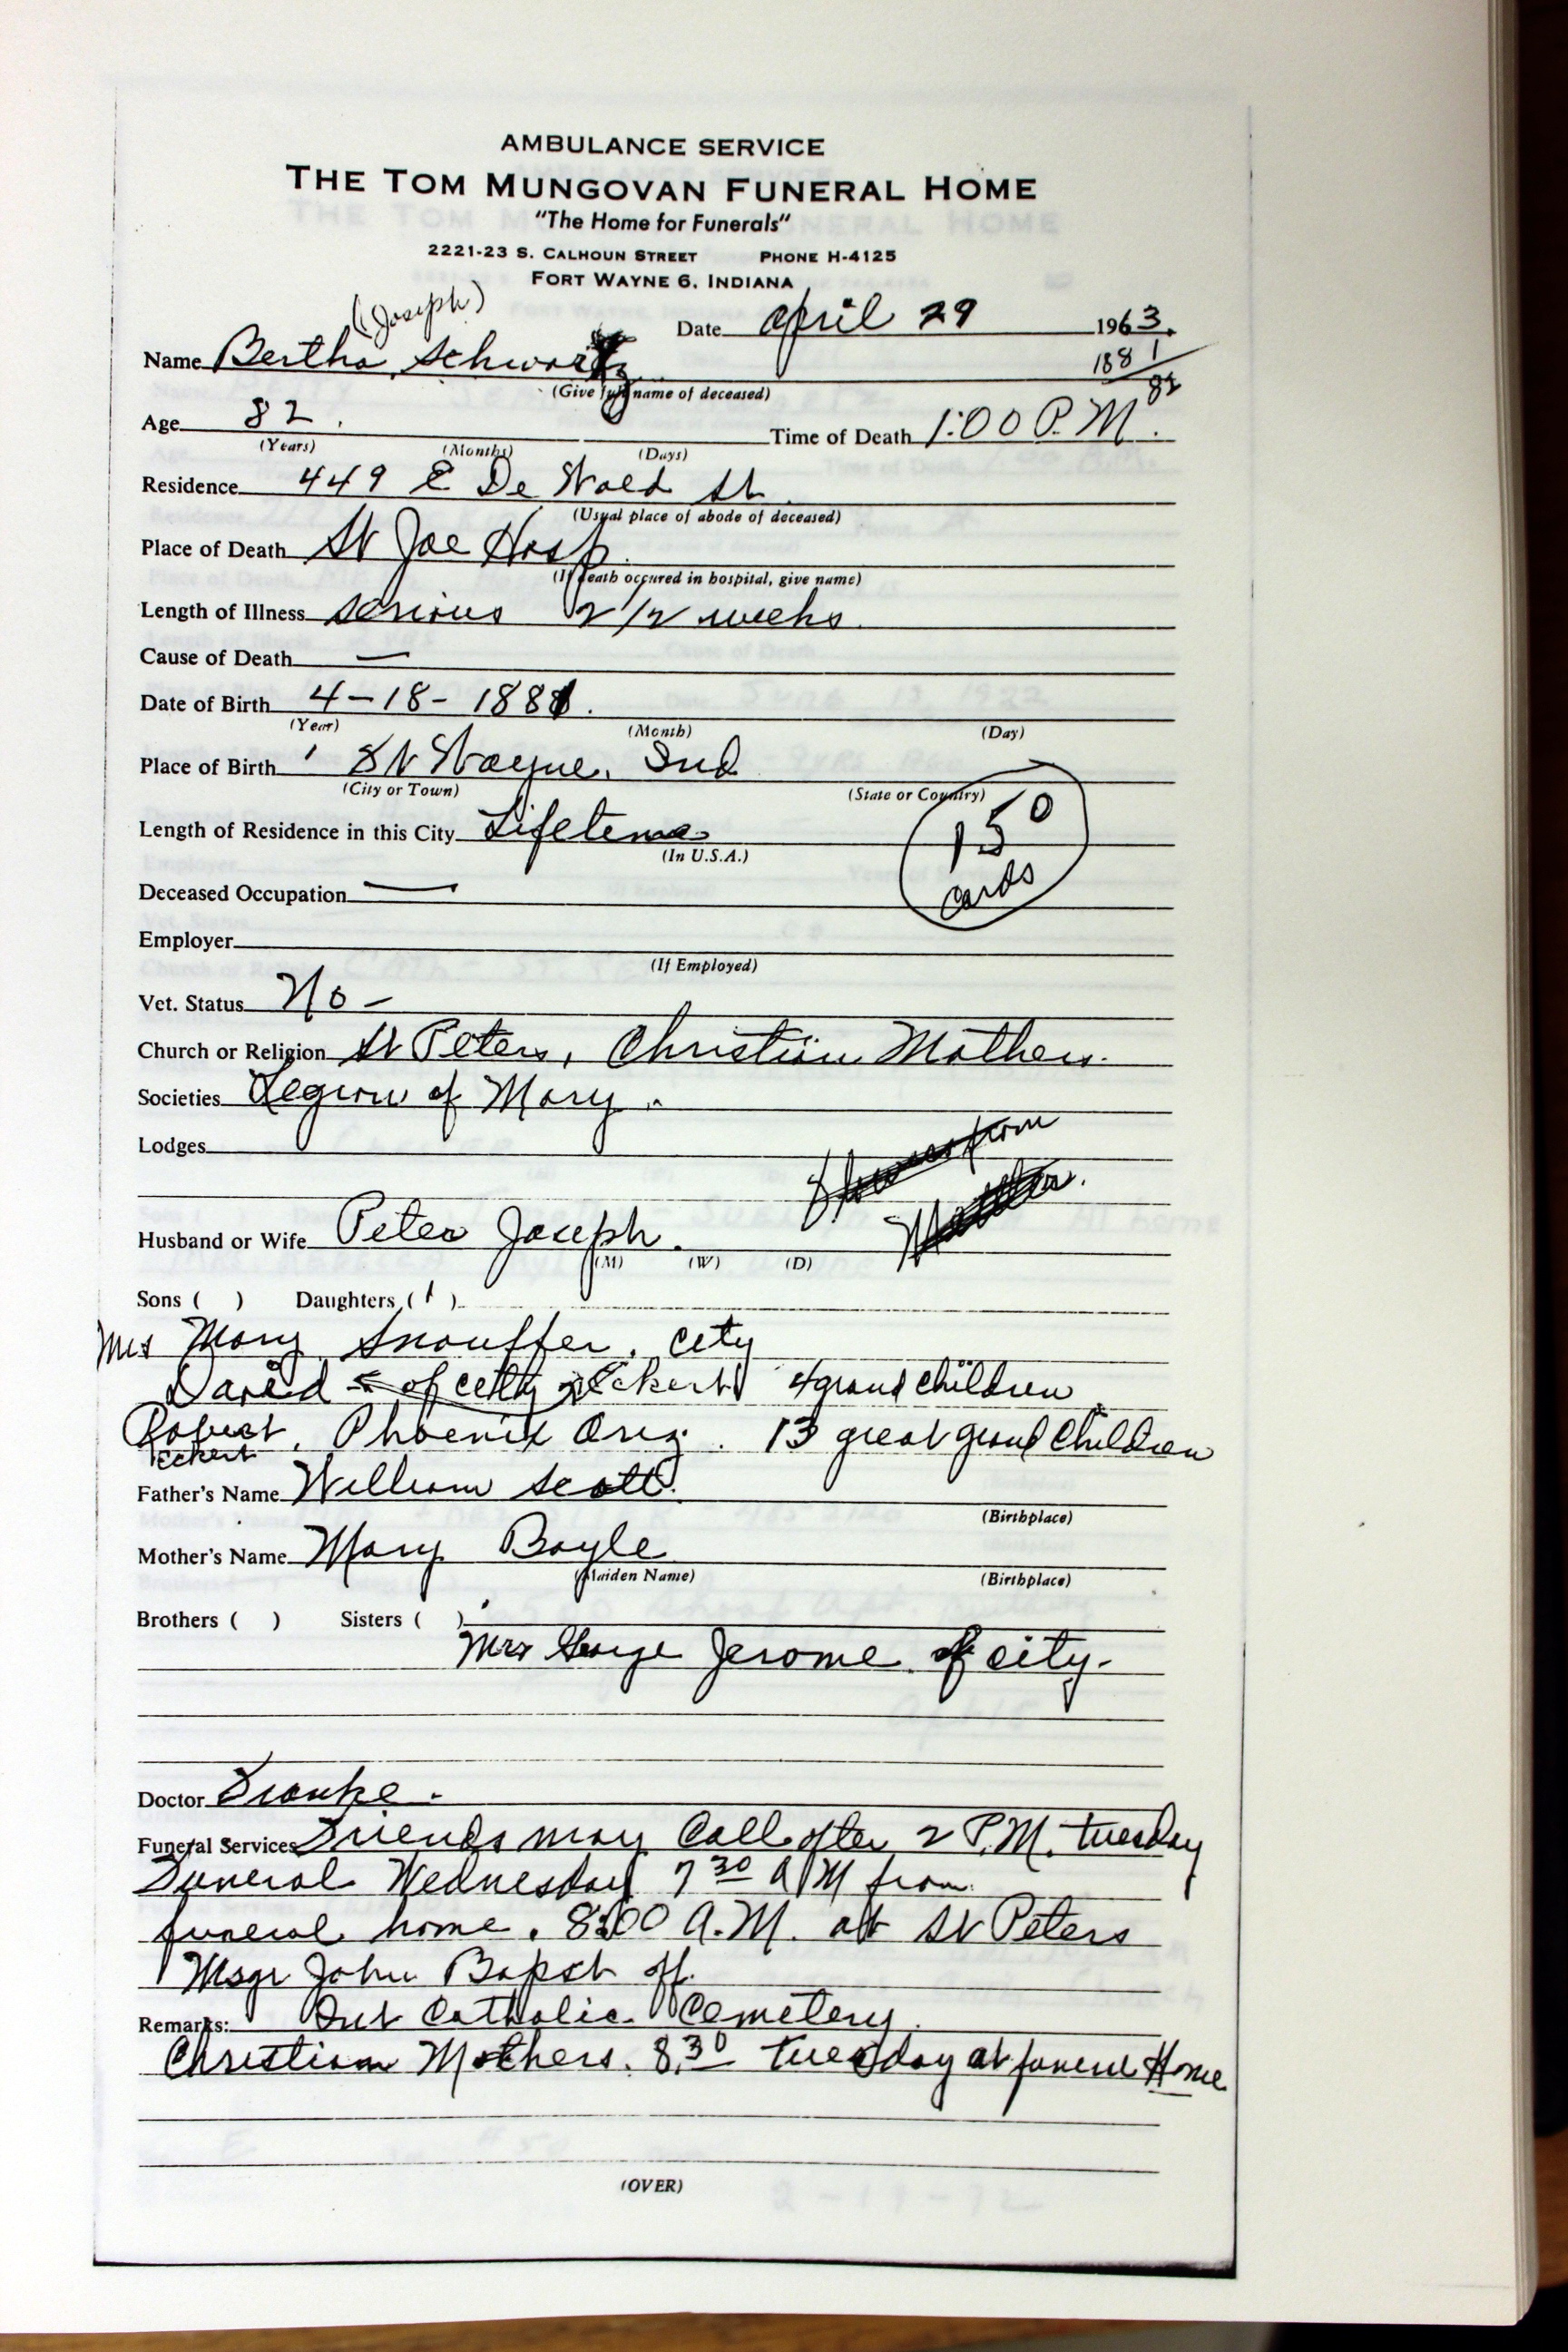 AMBULANCE SERVICE
THE TOM MUNGOVAN FUNERAL HOME
"The Home for Funerals"
2221-23 S. CALHOUN STREET PHONE H-4125
FORT WAYNE 6, INDIANA
(Joseph)
Date April 29 1963.
Name Bertha Schwartz 1881
(Give full name of deceased) 82
Age 82. Time of Death 1:00 P.M.
(Years) (Months) (Days)
Residence 449 E De Wald St.
(Usual place of abode of deceased)
Place of Death St Joe Hosp.
(If death occured in hospital, give name)
Length of Illness serious 2 1/2 weeks.
Cause of Death —
Date of Birth 4-18-1881.
(Year) (Month) (Day)
Place of Birth Ft Wayne, Ind
(City or Town) (State or Country)
150
Length of Residence in this City Lifetime
(In U.S.A.)
cards
Deceased Occupation —
Employer
(If Employed)
Vet. Status No -
Church or Religion St Peters, Christian Mothers.
Societies Legion of Mary.
Lodges
Husband or Wife Peter Joseph.
(M) (W) (D)
Sons ( ) Daughters (1)
Mrs Mary Snouffer, city
David of city Eckert 4 grand children
Robert, Phoenix Ariz. 13 great grand Children
Eckert
Father's Name William Scott.
(Birthplace)
Mother's Name Mary Boyle
(Maiden Name) (Birthplace)
Brothers ( ) Sisters ( )
Mrs George Jerome of city.
Doctor
Funeral Services Friends may Call after 2 P.M. Tuesday
Funeral Wednesday 7 30 A M from
funeral home. 8:00 A.M. at St Peters
Msgr John Bapst off.
Remarks: Int Catholic Cemetery.
Christian Mothers. 8,30 Tuesday at funeral Home
(OVER)